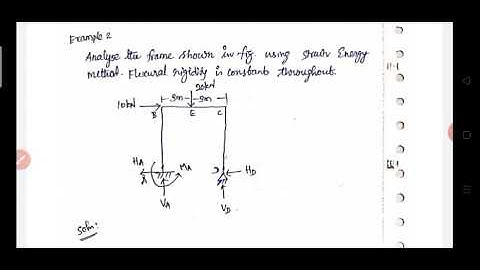 Example 2
Analyse the frame shown in fig. using strain Energy
method. Flexural rigidity is constant throughout.
20kN
5m 5m
10kN
B E C
HA MA HD
A D
VA VD
Soln: